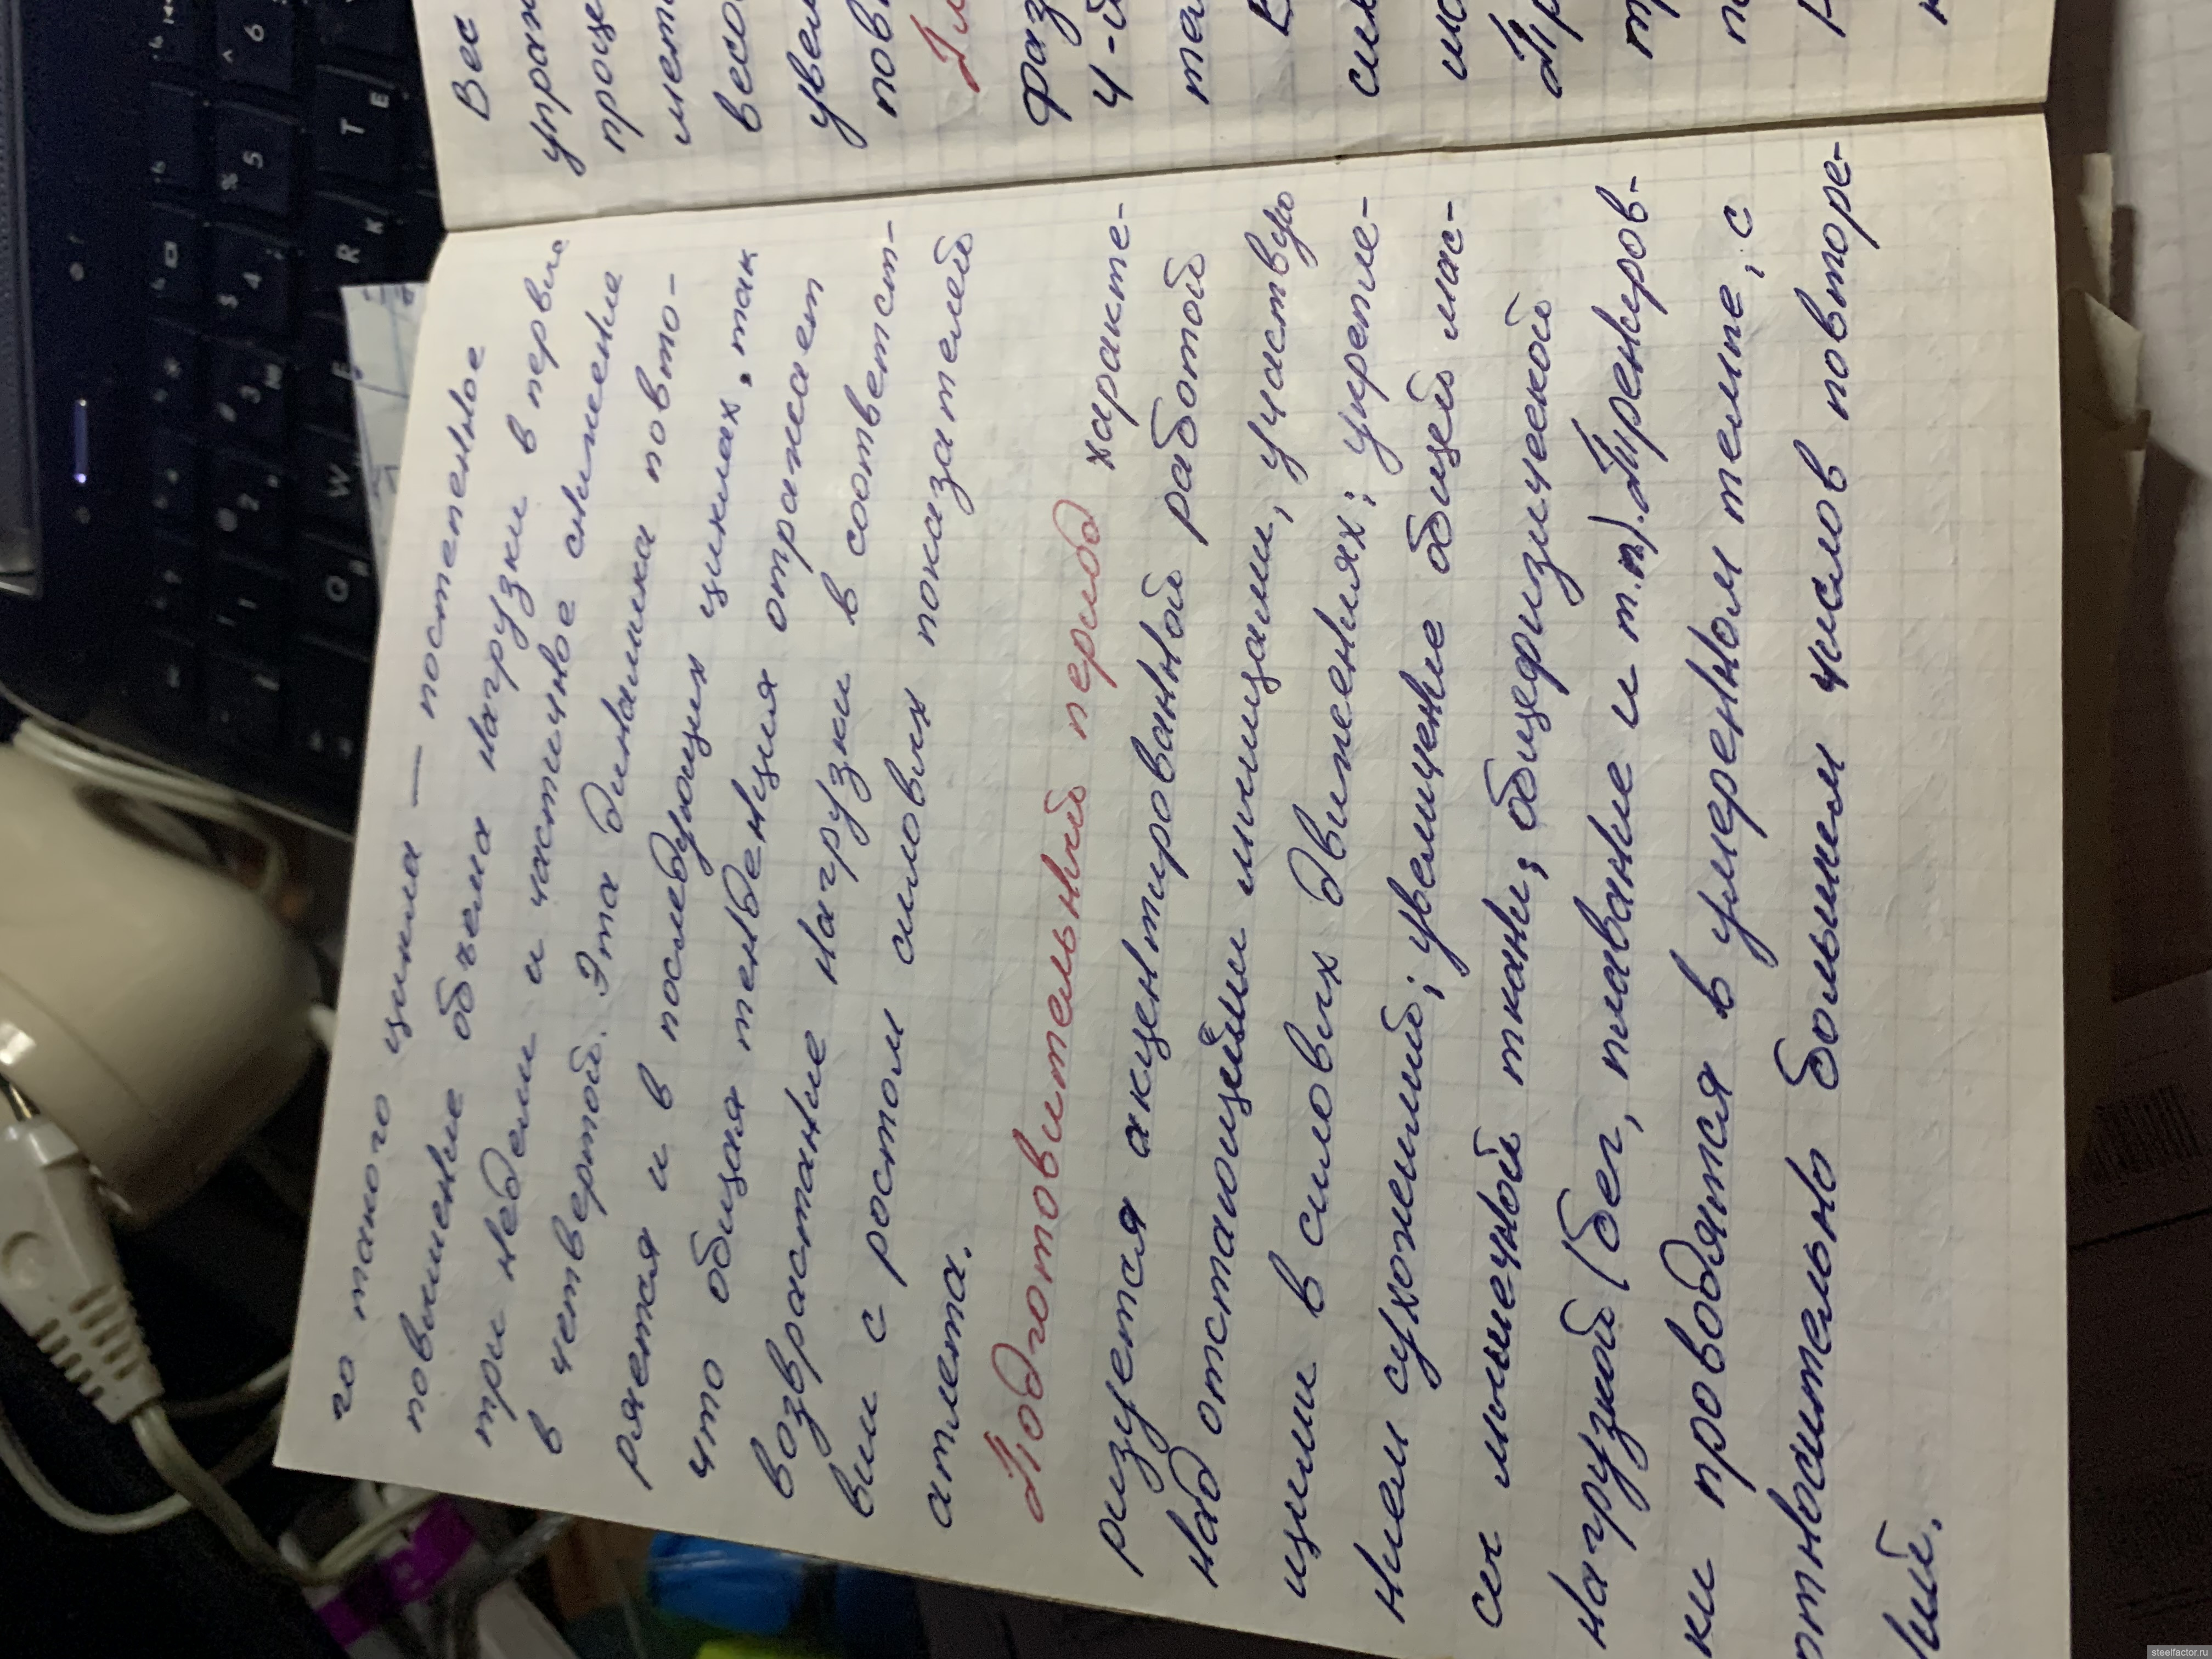 го такого цикла — постепенное
повышение объема нагрузки в первые
три недели и частичное снижение
в четвертой. Эта динамика повто-
ряется и в последующих циклах. так
что общая тенденция отражает
возврастание нагрузки в соответст-
вии с ростом силовых показателей
атлета.
Подготовительний период характе-
ризуется акцентированной работой
над отстающими мышцами, участвую
щими в силовых движениях; укрепле-
нием сухожилий; увелицение общей мас-
сы мышечной ткани; общефизической
нагрузкой (бег, плавание и т.п). Трениров-
ки проводятся в умеренном темпе, с
относительно большим числов повторе-
ний.
Вес
упраж
проце
мет
весо
увел
пов
фаз
4-й
те
си
Пр
steelfactor.ru